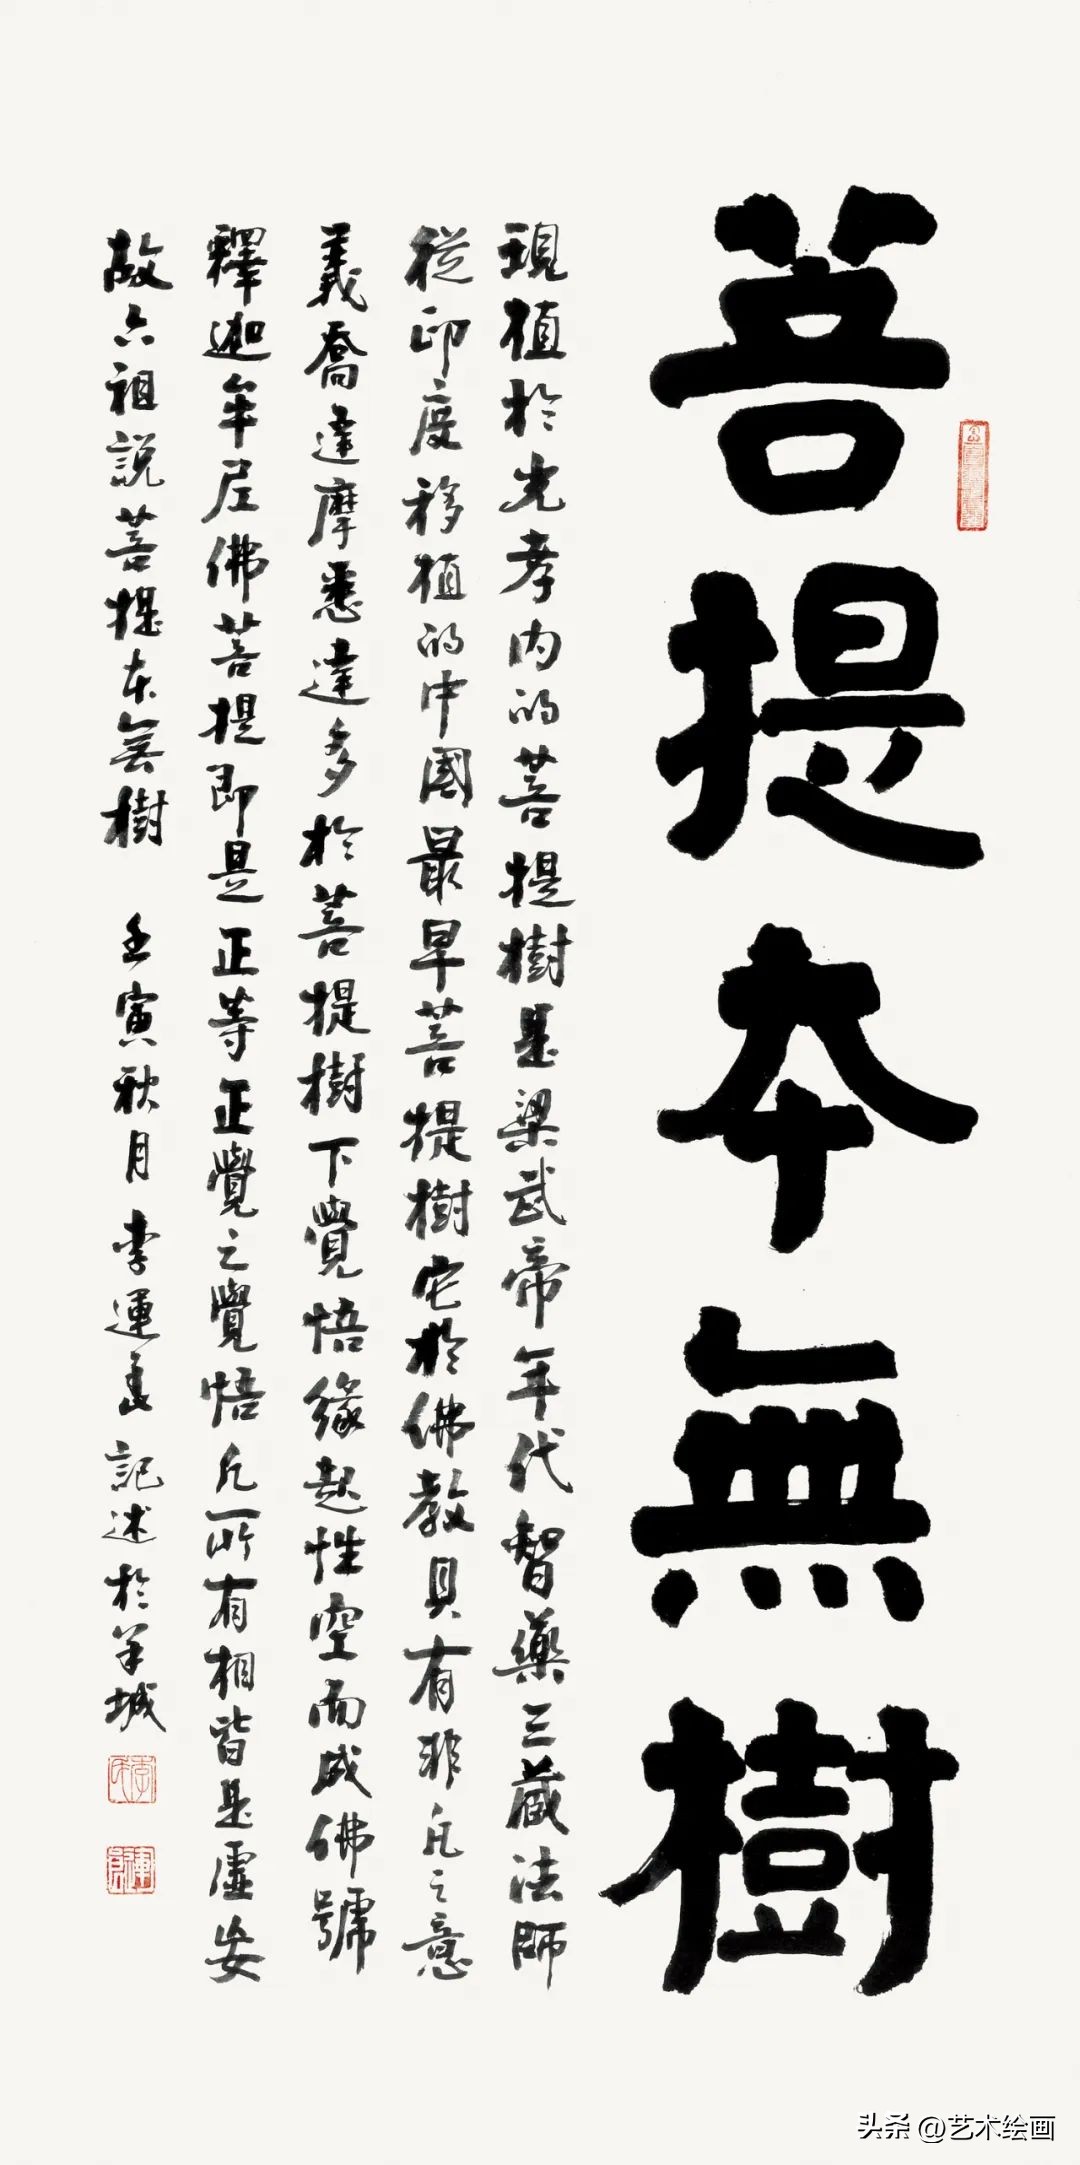 菩提本無樹
現植於光孝内的菩提樹是梁武帝年代智藥三藏法師
從印度移植的中國最早菩提樹它於佛教具有非凡之意
義喬達摩悉達多於菩提樹下覺悟緣起性空而成佛號
釋迦牟尼佛菩提即是正等正覺之覺悟凡所有相皆是虛妄
故六祖説菩提本無樹 壬寅秋月 李運 記述於羊城
头条 @艺术绘画